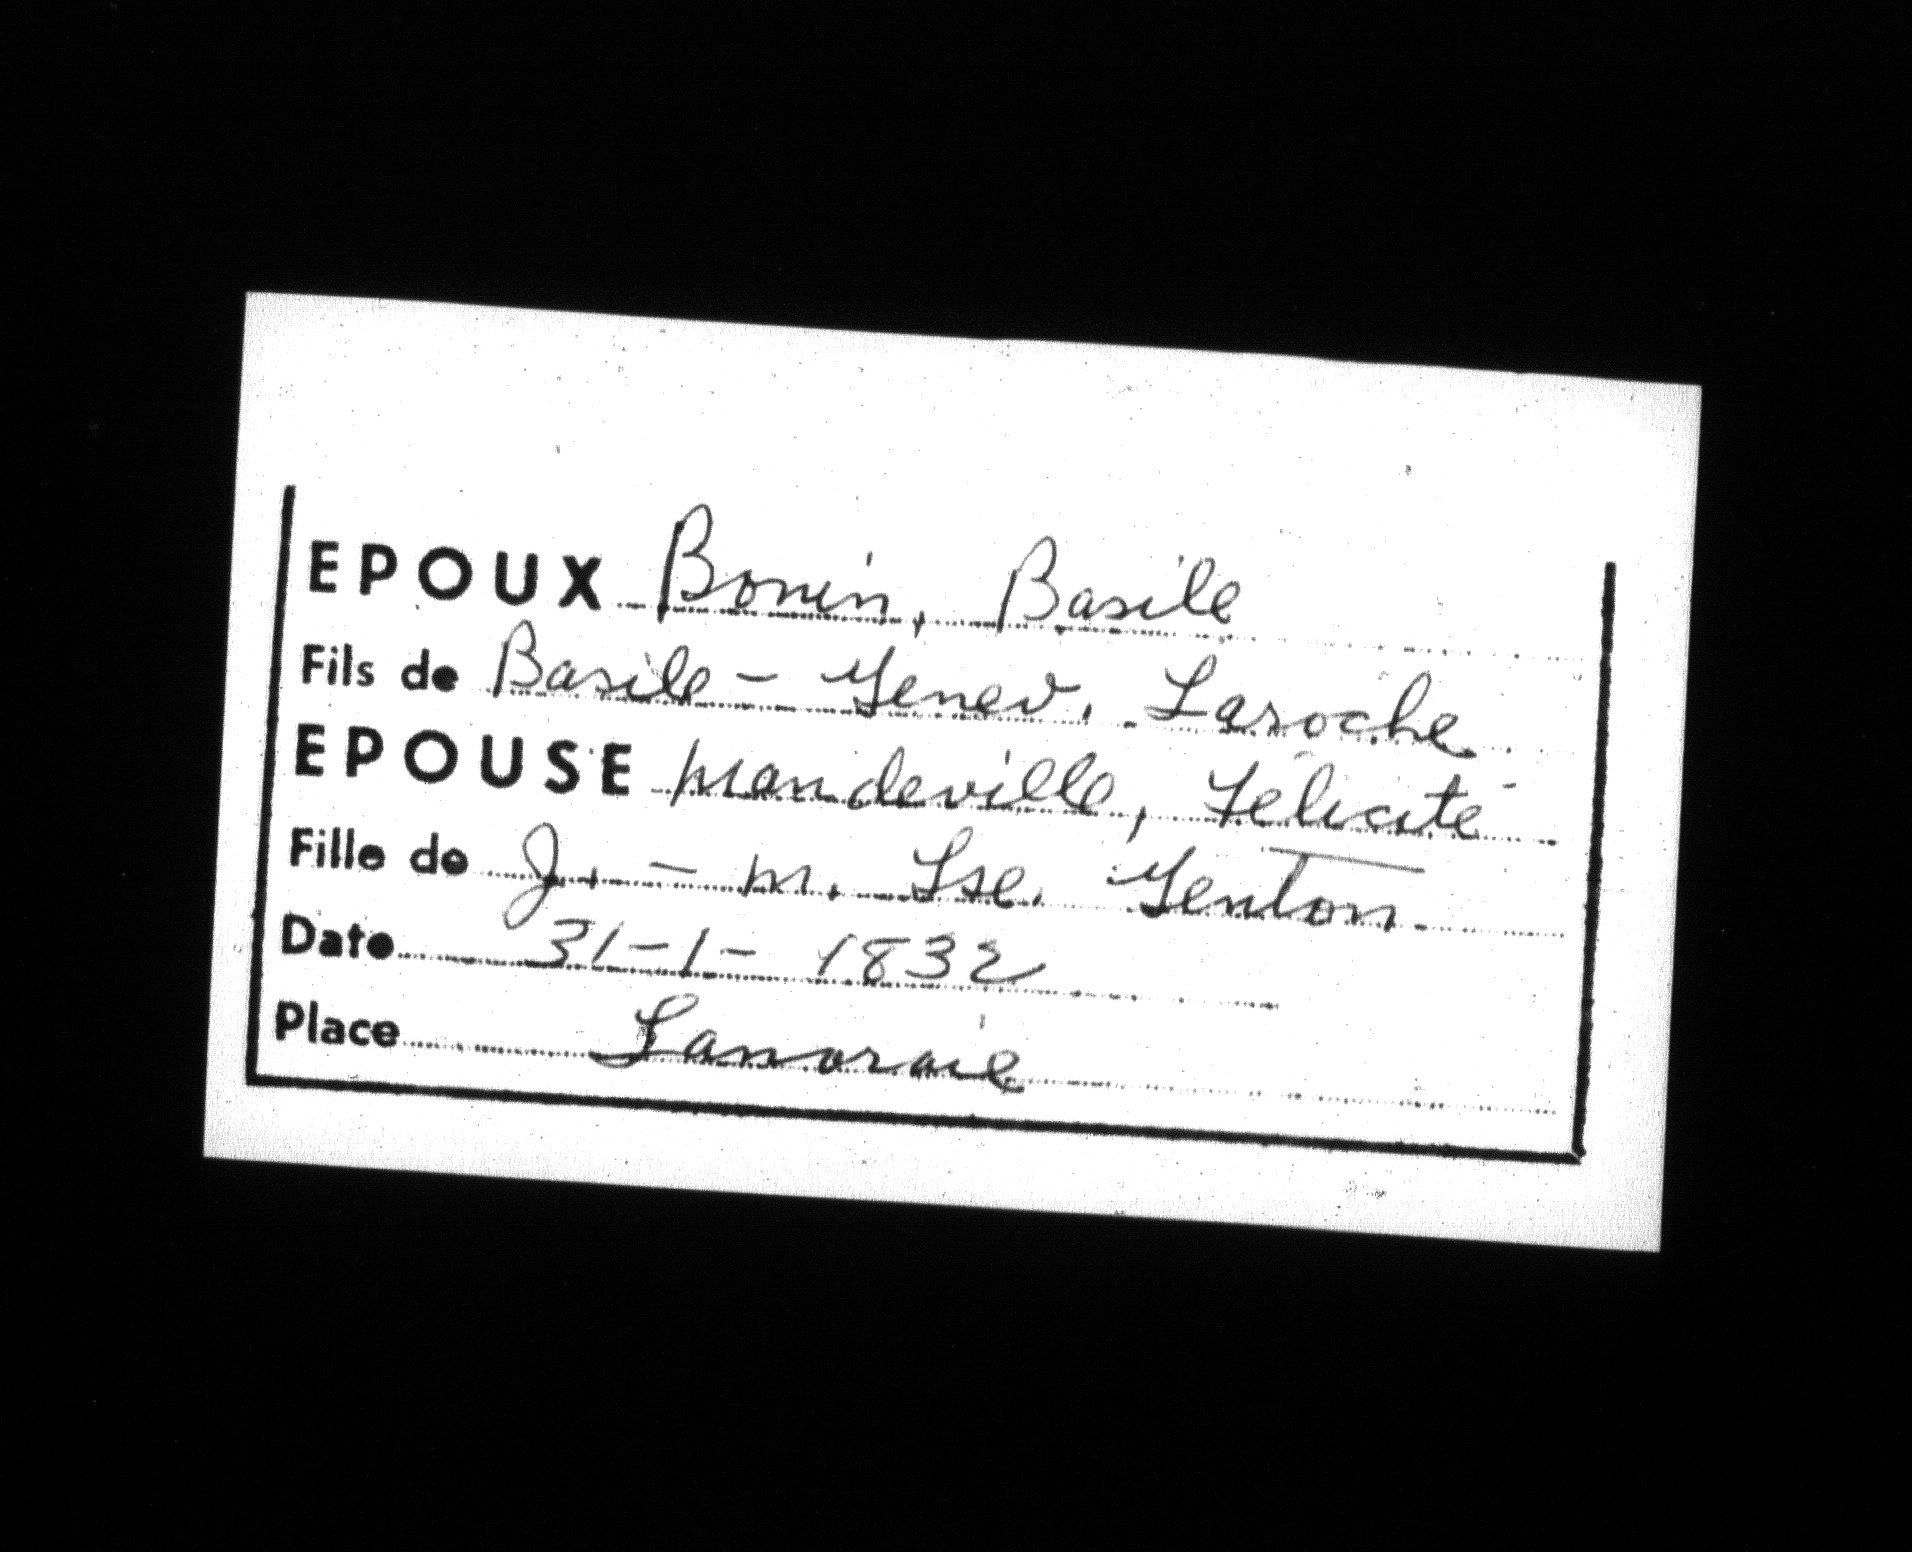 EPOUX Bonin, Basile
Fils de Basile - Genev. Laroche
EPOUSE Mandeville, Félicité
Fille de J. - M. Lse. Genton
Date 31-1-1832
Place Lanoraie